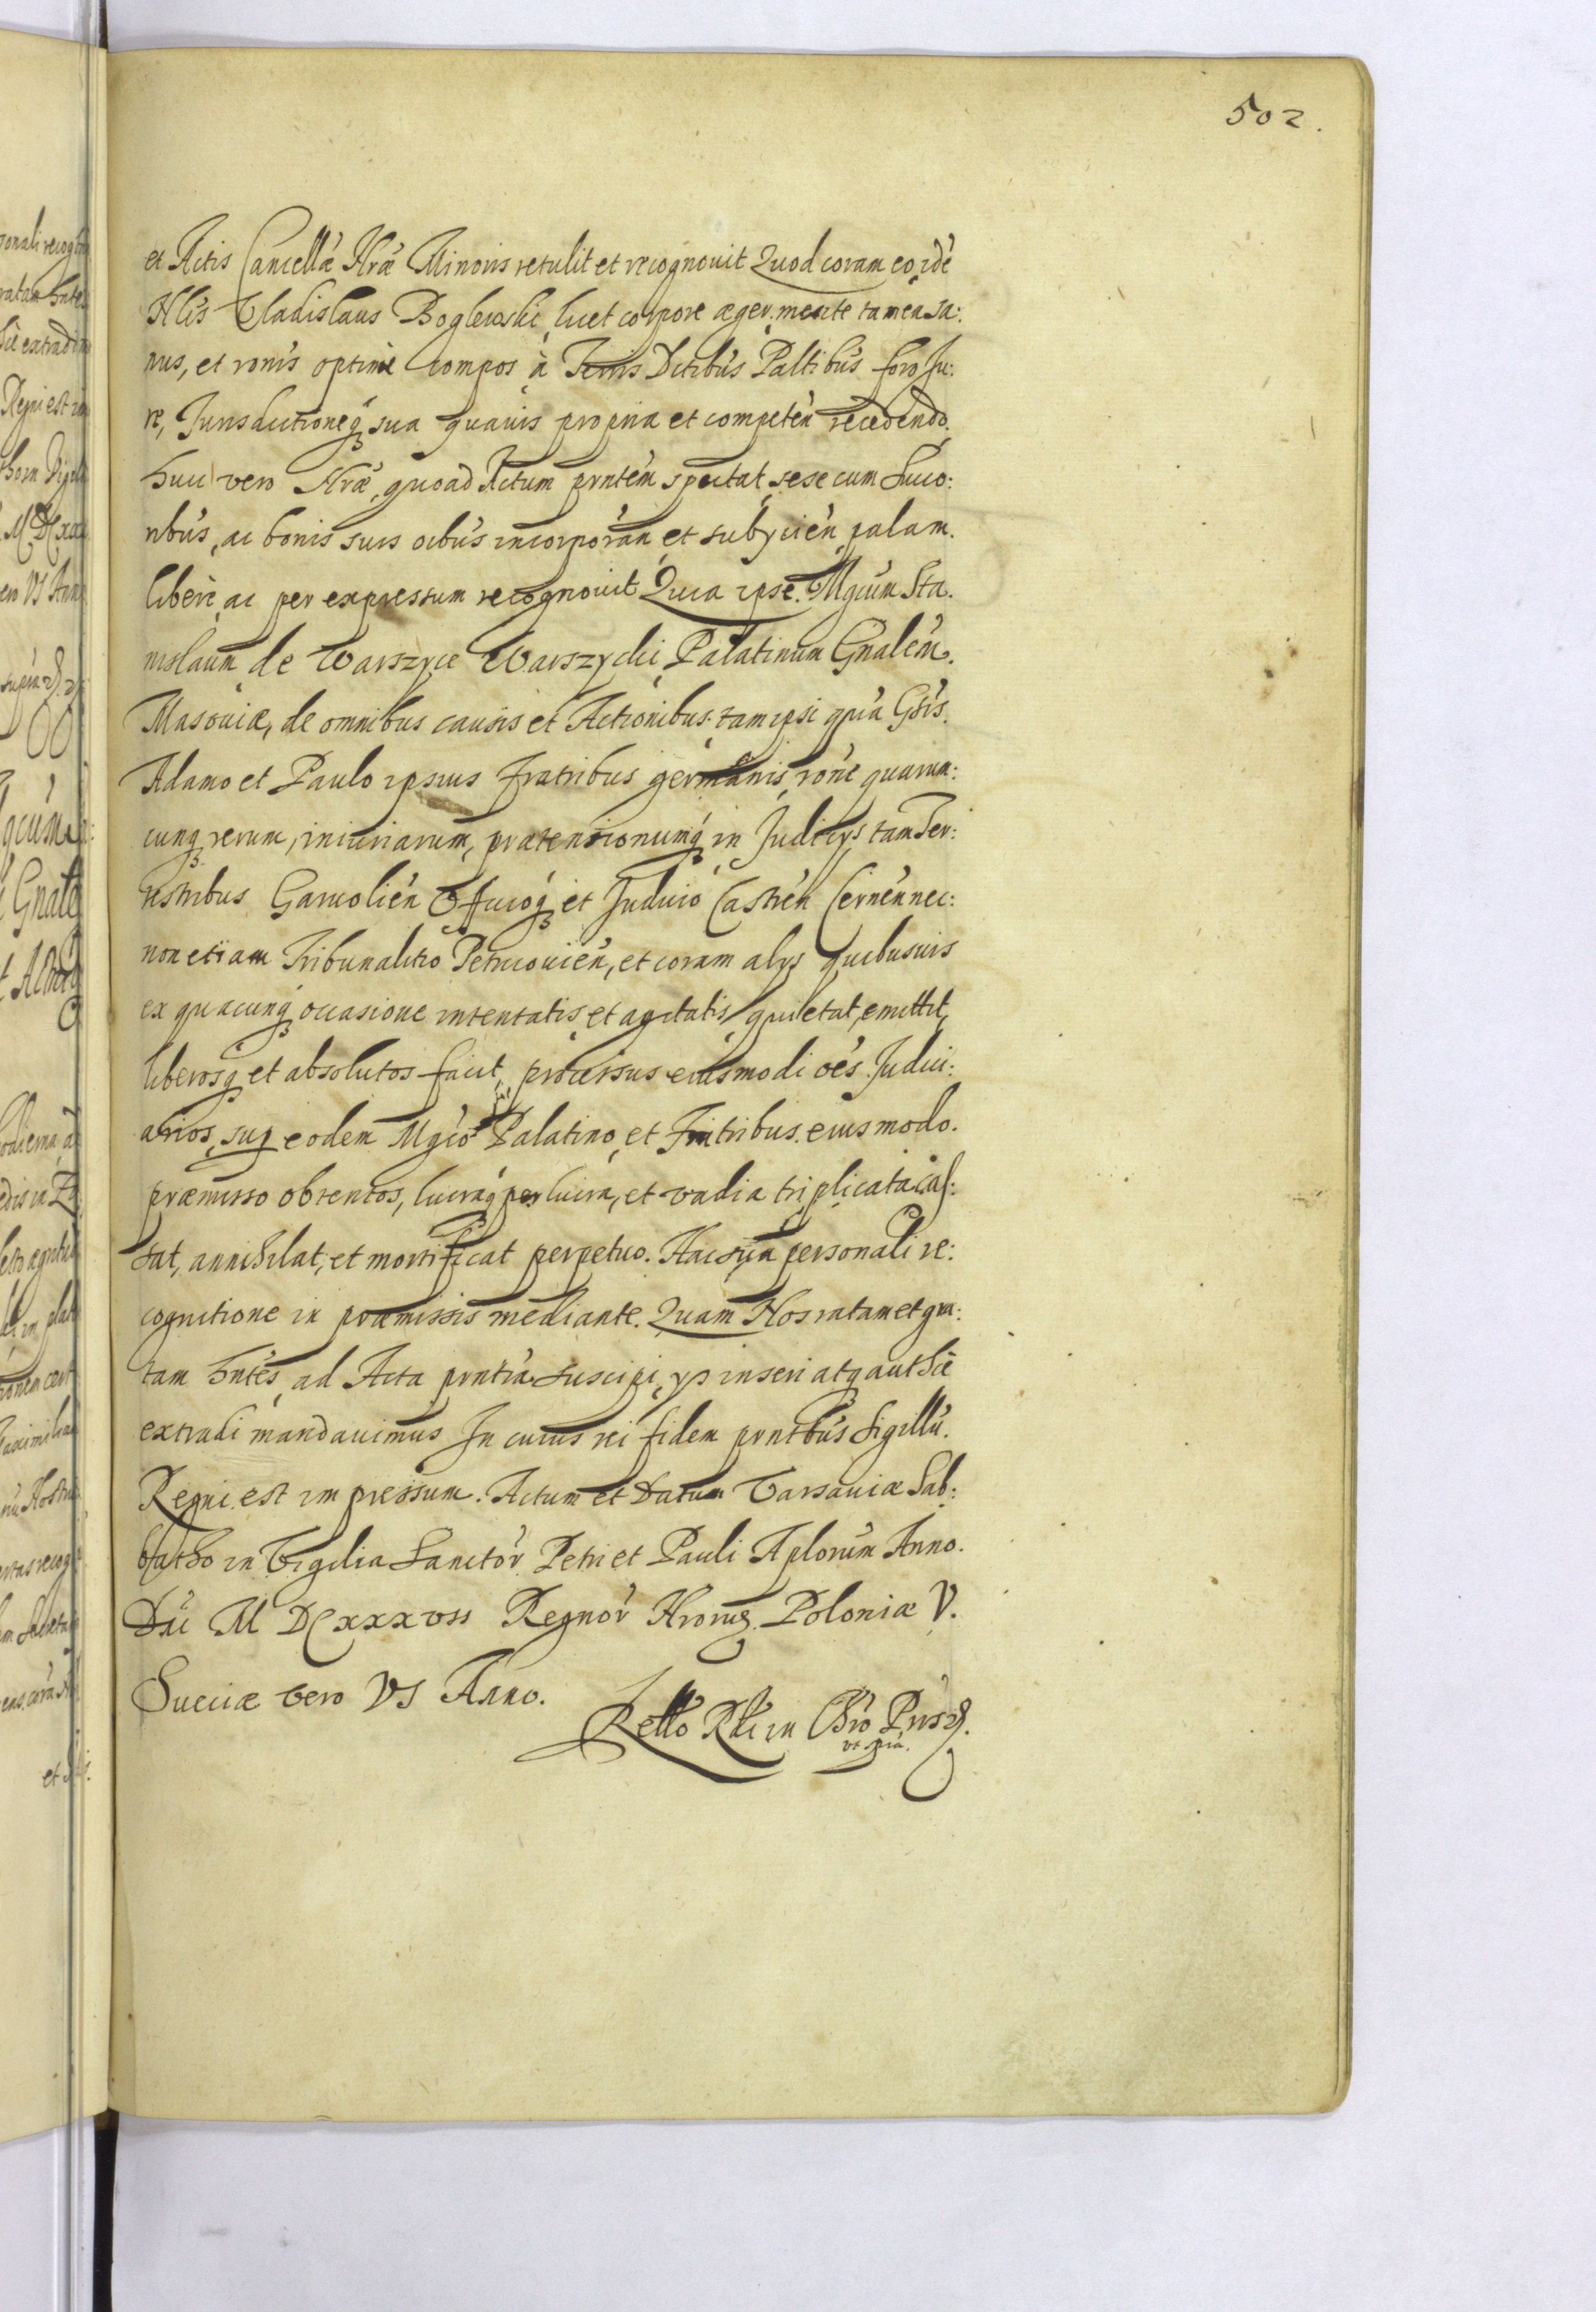 502.
et Actis Cancellae Nrae Minoris retulit et recognouit Quod coram eo
Nlis Vladislaus Boglewski, licet corpore aeger, mente tamen sa:
nus, et ronis optime compos à Terris Ditibus Paltibus foro Ju:
re, Jurisdictioneq sua quauis propria et competen recedendo.
huic vero Nrae, quoad Actum prntem spectat, sese cum Succo:
ribus, ac bonis suis oibus incorporan et subycien, palam.
libere, ac per expressum recognouit Quia ipse. Mgcum Sta.
nislaum de Warszyce Warszycki, Palatinum Gnalem.
Masouiae, de omnibus causis et Actionibus. tam ipsi qua Gsis.
Adamo et Paulo ipsius fratribus germanis, rone quarum:
cunq rerum, iniuriarum, praetensionumq in Judicijs tam Ter:
restribus Garuolien Officioq et Judicio Castren Cernen nec:
non etiam Tribunalitio Petricouien, et coram alys quibusuis
ex quacunq occasione intentatis, et agitatis, quietat, emittit,
liberosq et absolutos facit, processus eiusmodi oes Judici:
arios, sup eodem Mgco Palatino, et Fratribus. eius modo.
praemisso obtentos, lucraq per lucra, et vadia triplicata cas:
sat, annihilat, et mortificat perpetuo. Hac sua personali re:
cognitione in praemissis mediante. Quam Nos ratam et gra:
tam hntes, ad Acta prntia suscipi, ys inseri atq authce
extradi mandauimus In cuius rei fidem prntbus Sigillu.
Regni est impressum. Actum et Datum Varsauiae Sab:
batho in Vigilia Sanctor Petri et Pauli Aplorum Anno.
Dni M DCxxxvii Regnor Nrorug Poloniae V.
Sueciae vero VI Anno.
ut spra.